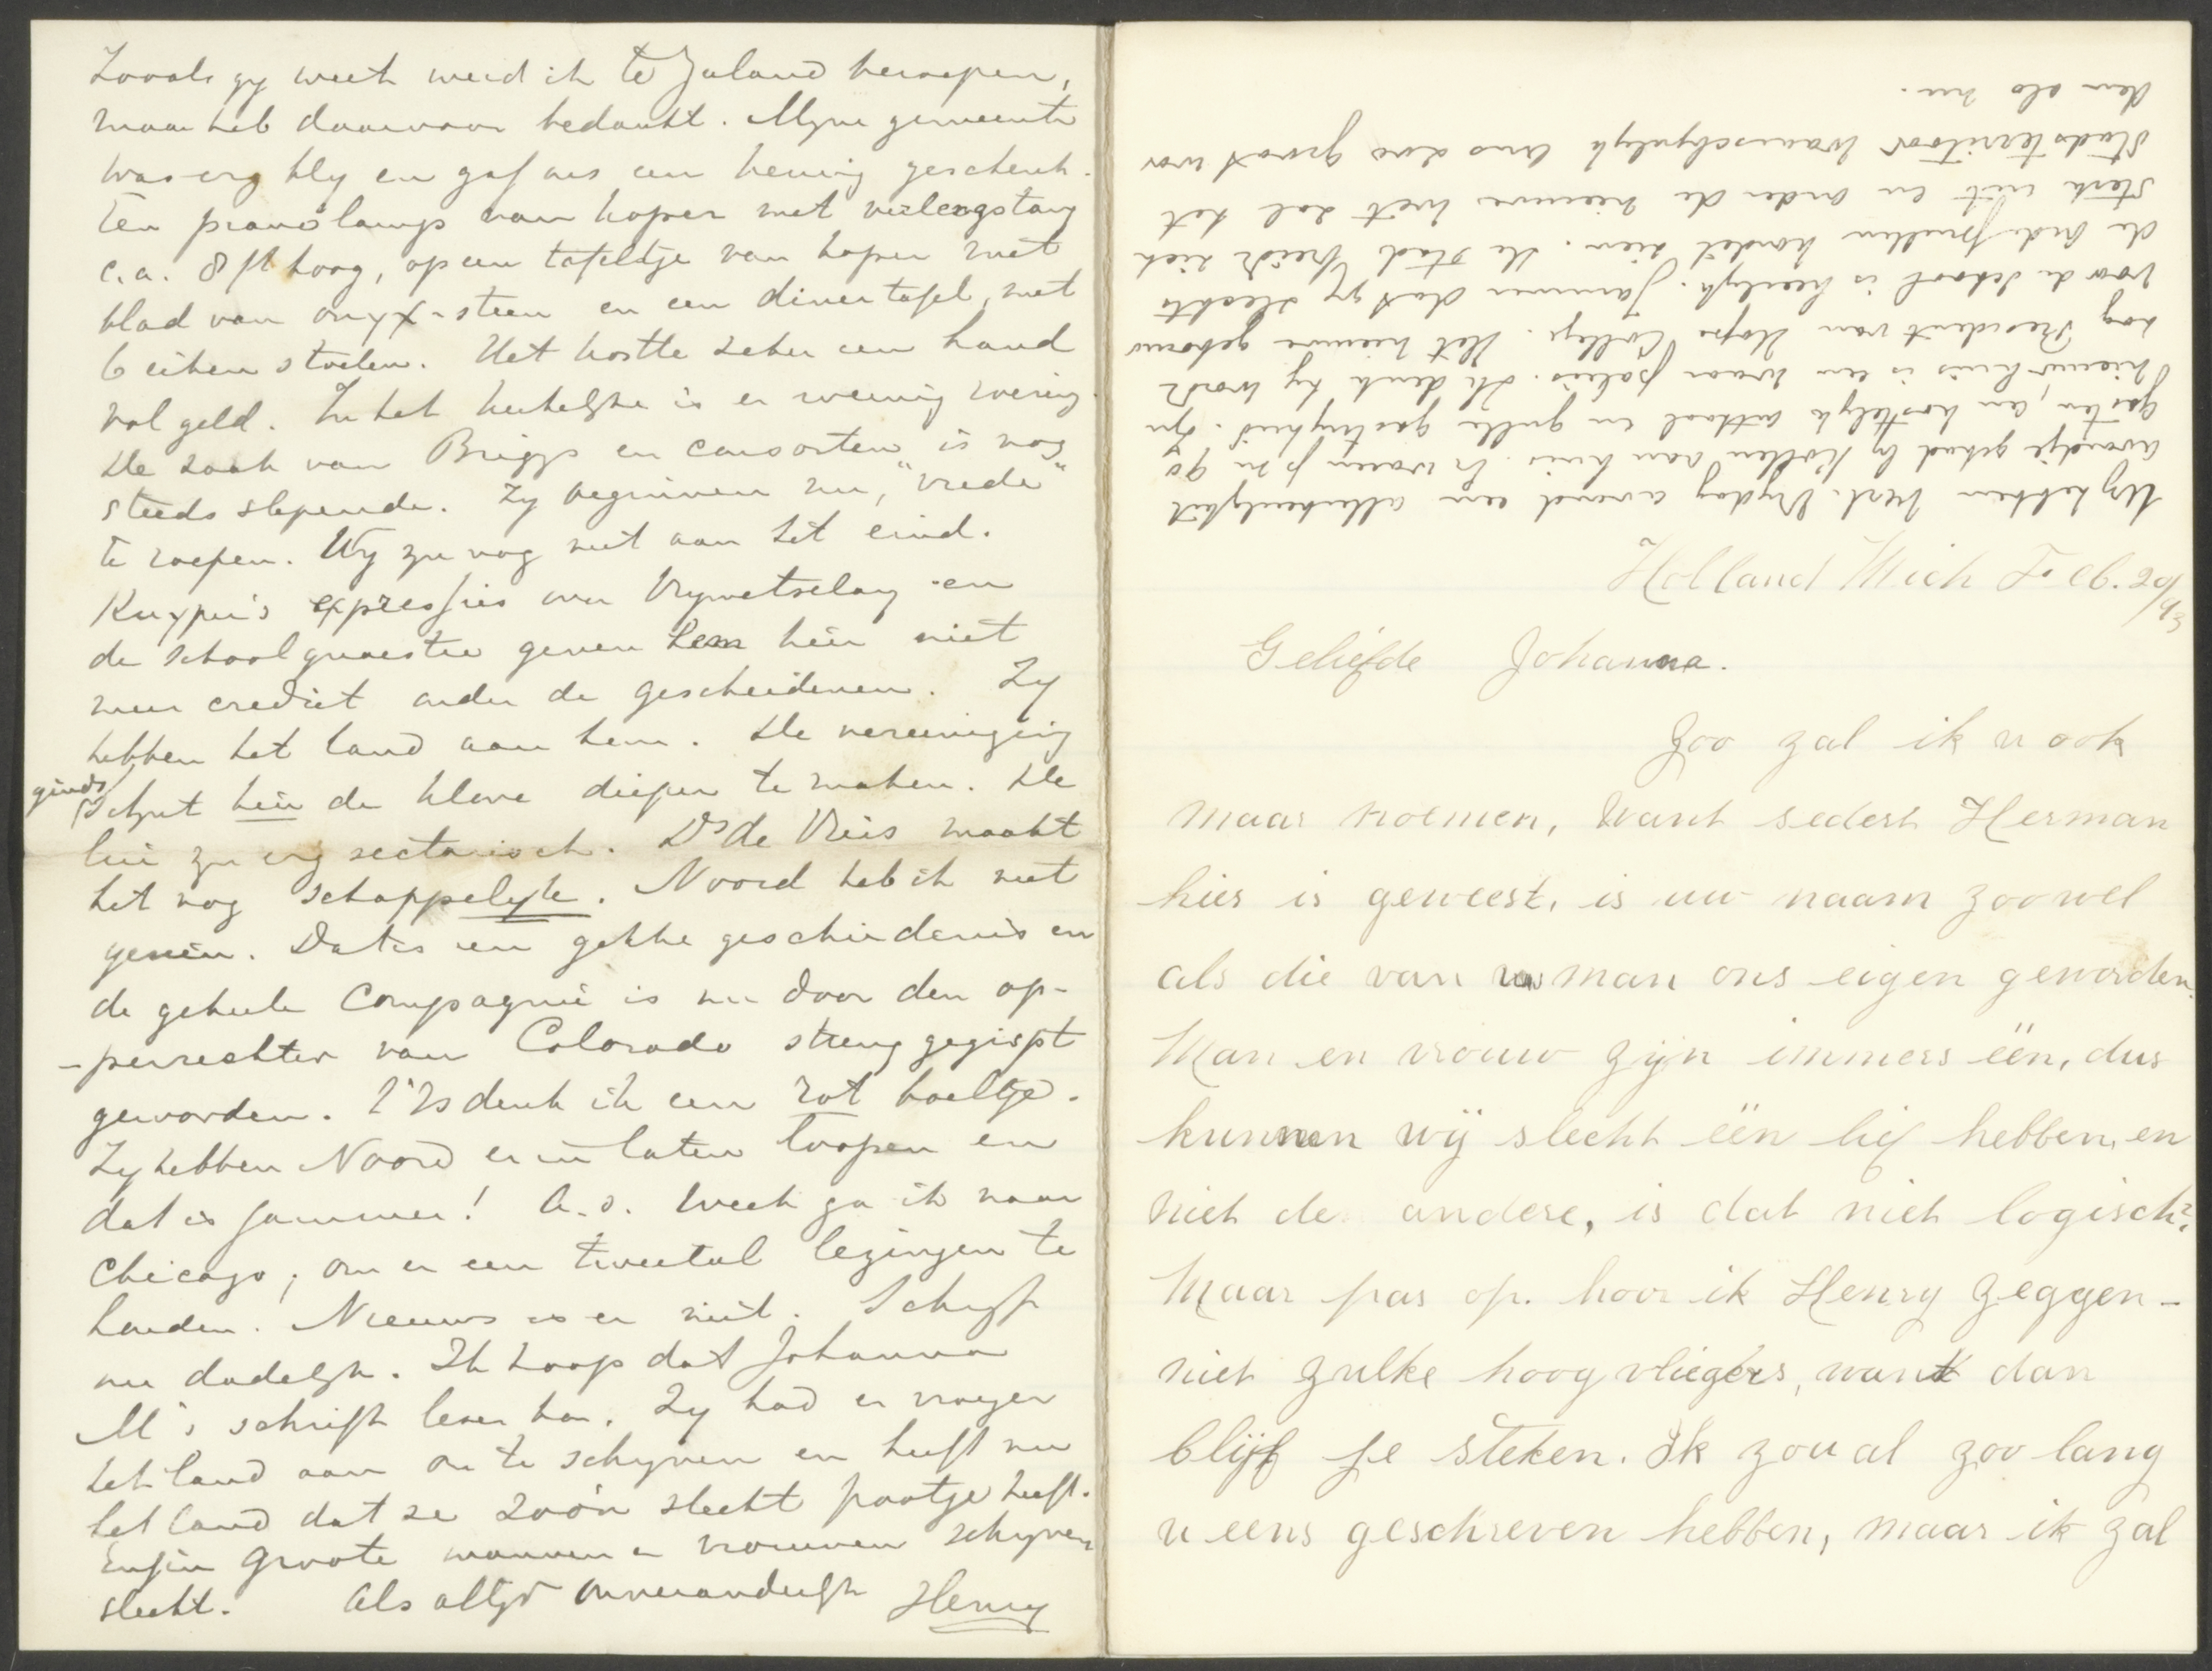 Zooals gy weet werd ik te Zuland beroepen,
maar heb daarvoor bedankt. Myne gemeente
was erg bly en gaf ons een keurig geschenk.
Een pianolamp van koper met verlengstang
c.a. 8 ft hoog, op een tafeltje van koper met
blad van onyx-steen en een diner tafel, met
6 eiken stoelen. Het kostte zeker een hand
vol geld. In het kerkelyke is er weinig
De zaak van Briggs en consorten is nog
steeds slepende. Zy beginnen nu, "vrede"
te roepen. Wy zyn nog niet aan het eind.
Kuyper's expressies over Vrymetselary en
de schoolquaestie geven hem hier niet
meer crediet onder de gescheidenen. Zy
hebben het land aan hem. De vereeniging
ginds schynt hier de klove dieper te maken. De
lui zyn erg sectarisch. Ds de Vries maakt
het nog schappelyk. Noord heb ik niet
gezien. Dat is een gekke geschiedenis en
de geheele Compagnie is nu door den op-
-perrechter van Colorado streng gegispt
geworden. 't Is denk ik een rot boeltje.
Zy hebben Noord er in laten loopen en
dat is jammer! A.s. week ga ik naar
Chicago, om er een tweetal lezingen te
houden. Nieuws is er niet. Schryf
nu dadelyk. Ik hoop dat Johanna
M's schrift lezen kan. Zy had er vroeger
het land aan om te schryven en heeft nu
het land dat ze zoo'n slecht pootje heeft.
Enfin groote mannen en vrouwen schryven
slecht. Als altyd onveranderlyk Henry
Wy hebben verl. Vrydag avond een allerheerlykst
avondje gehad by Kollen aan huis. Er waren p.m 90
gasten, een kostelyk onthaal en gulle gastvryheid. Zyn
nieuw huis is een waar paleis. Ik denk hy wordt
nog President van Hope College. Het nieuwe gebouw
voor de school is heerlyk. Jammer dat gy slechts
de grondspullen hadt zien. De stad breidt zich
sterk uit en onder de nieuwe wet zal het
stadsterritoir waarschynlyk eens zoo groot wor
den als nu.
Holland Mich Feb. 20/93
Geliefde Johanna.
Zoo zal ik u ook
maar noemen, want sedert Herman
hier is geweest, is uw naam zoowel
als die van uw man ons eigen geworden.
Man en vrouw zyn immers één, dus
kunnen wij slecht één lief hebben, en
niet de andere, is dat niet logisch?
Maar pas op. hoor ik Henry zeggen-
niet zulke hoog vliegers, want dan
blijf je steken. Ik zou al zoo lang
u eens geschreven hebben, maar ik zal